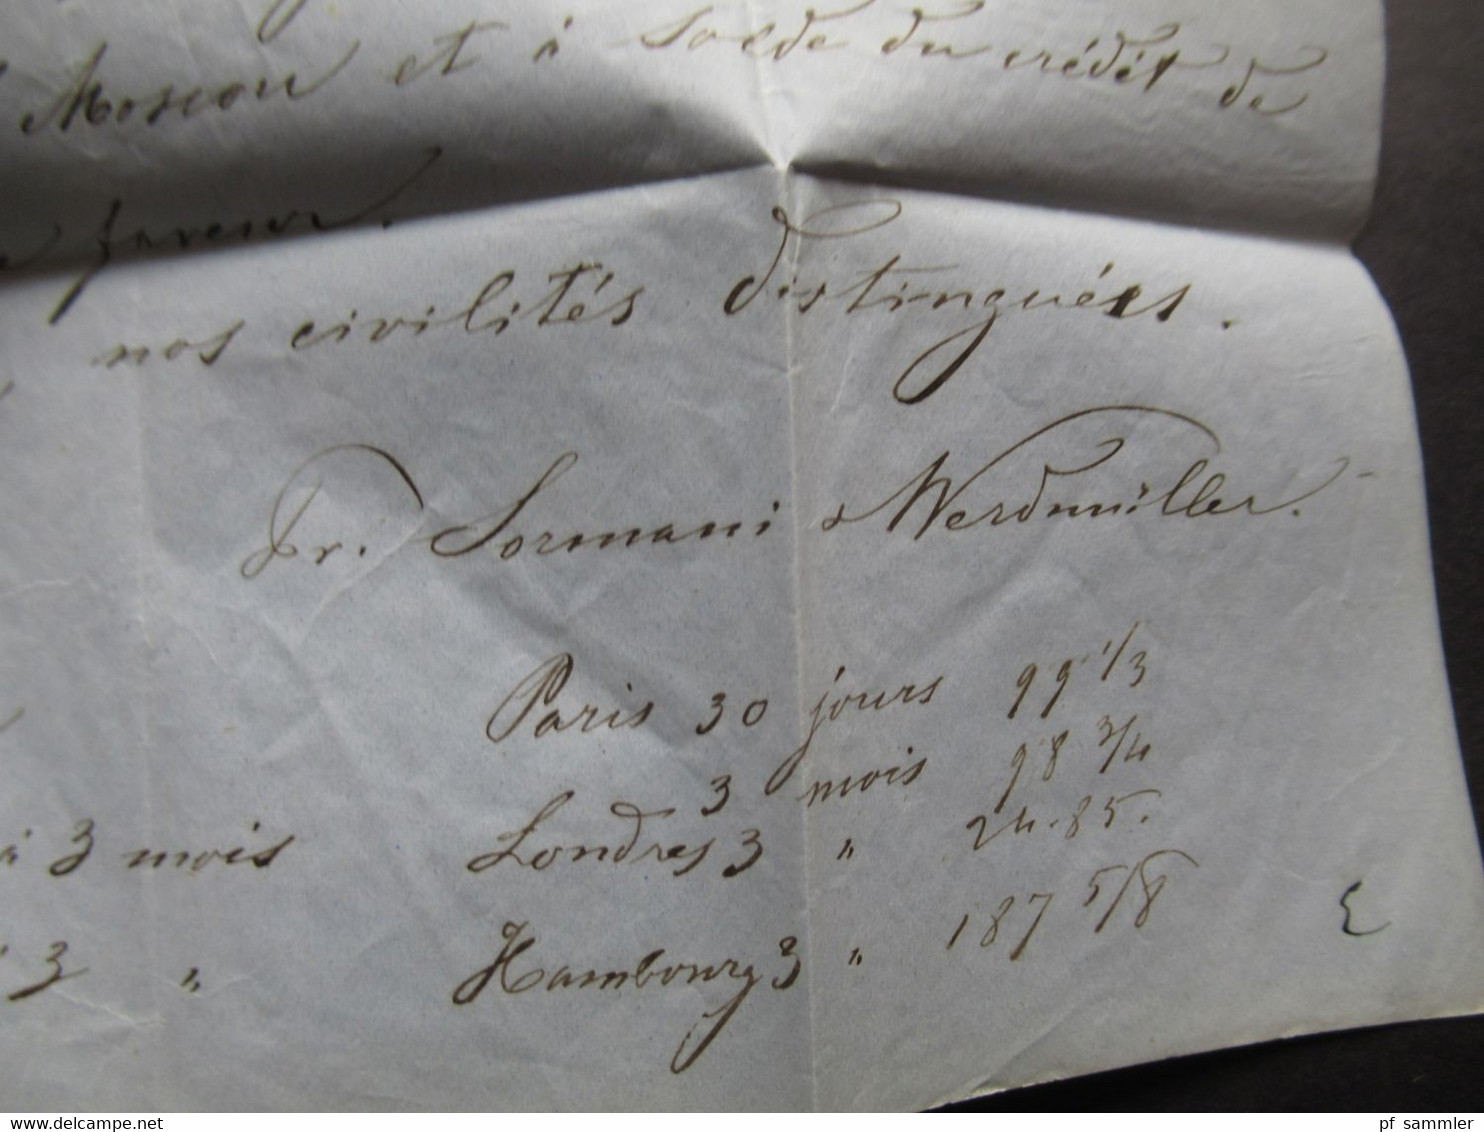 Moscou et à solde du crédit de
faveur.
nos civilités distinguées.
Fr. Sormani & Werdmüller.
Paris 30 jours 99 1/3
3 mois 98 3/4
à 3 mois Londres 3 " 24.85.
à 3 " Hambourg 3 " 187 5/8
pf_sammler